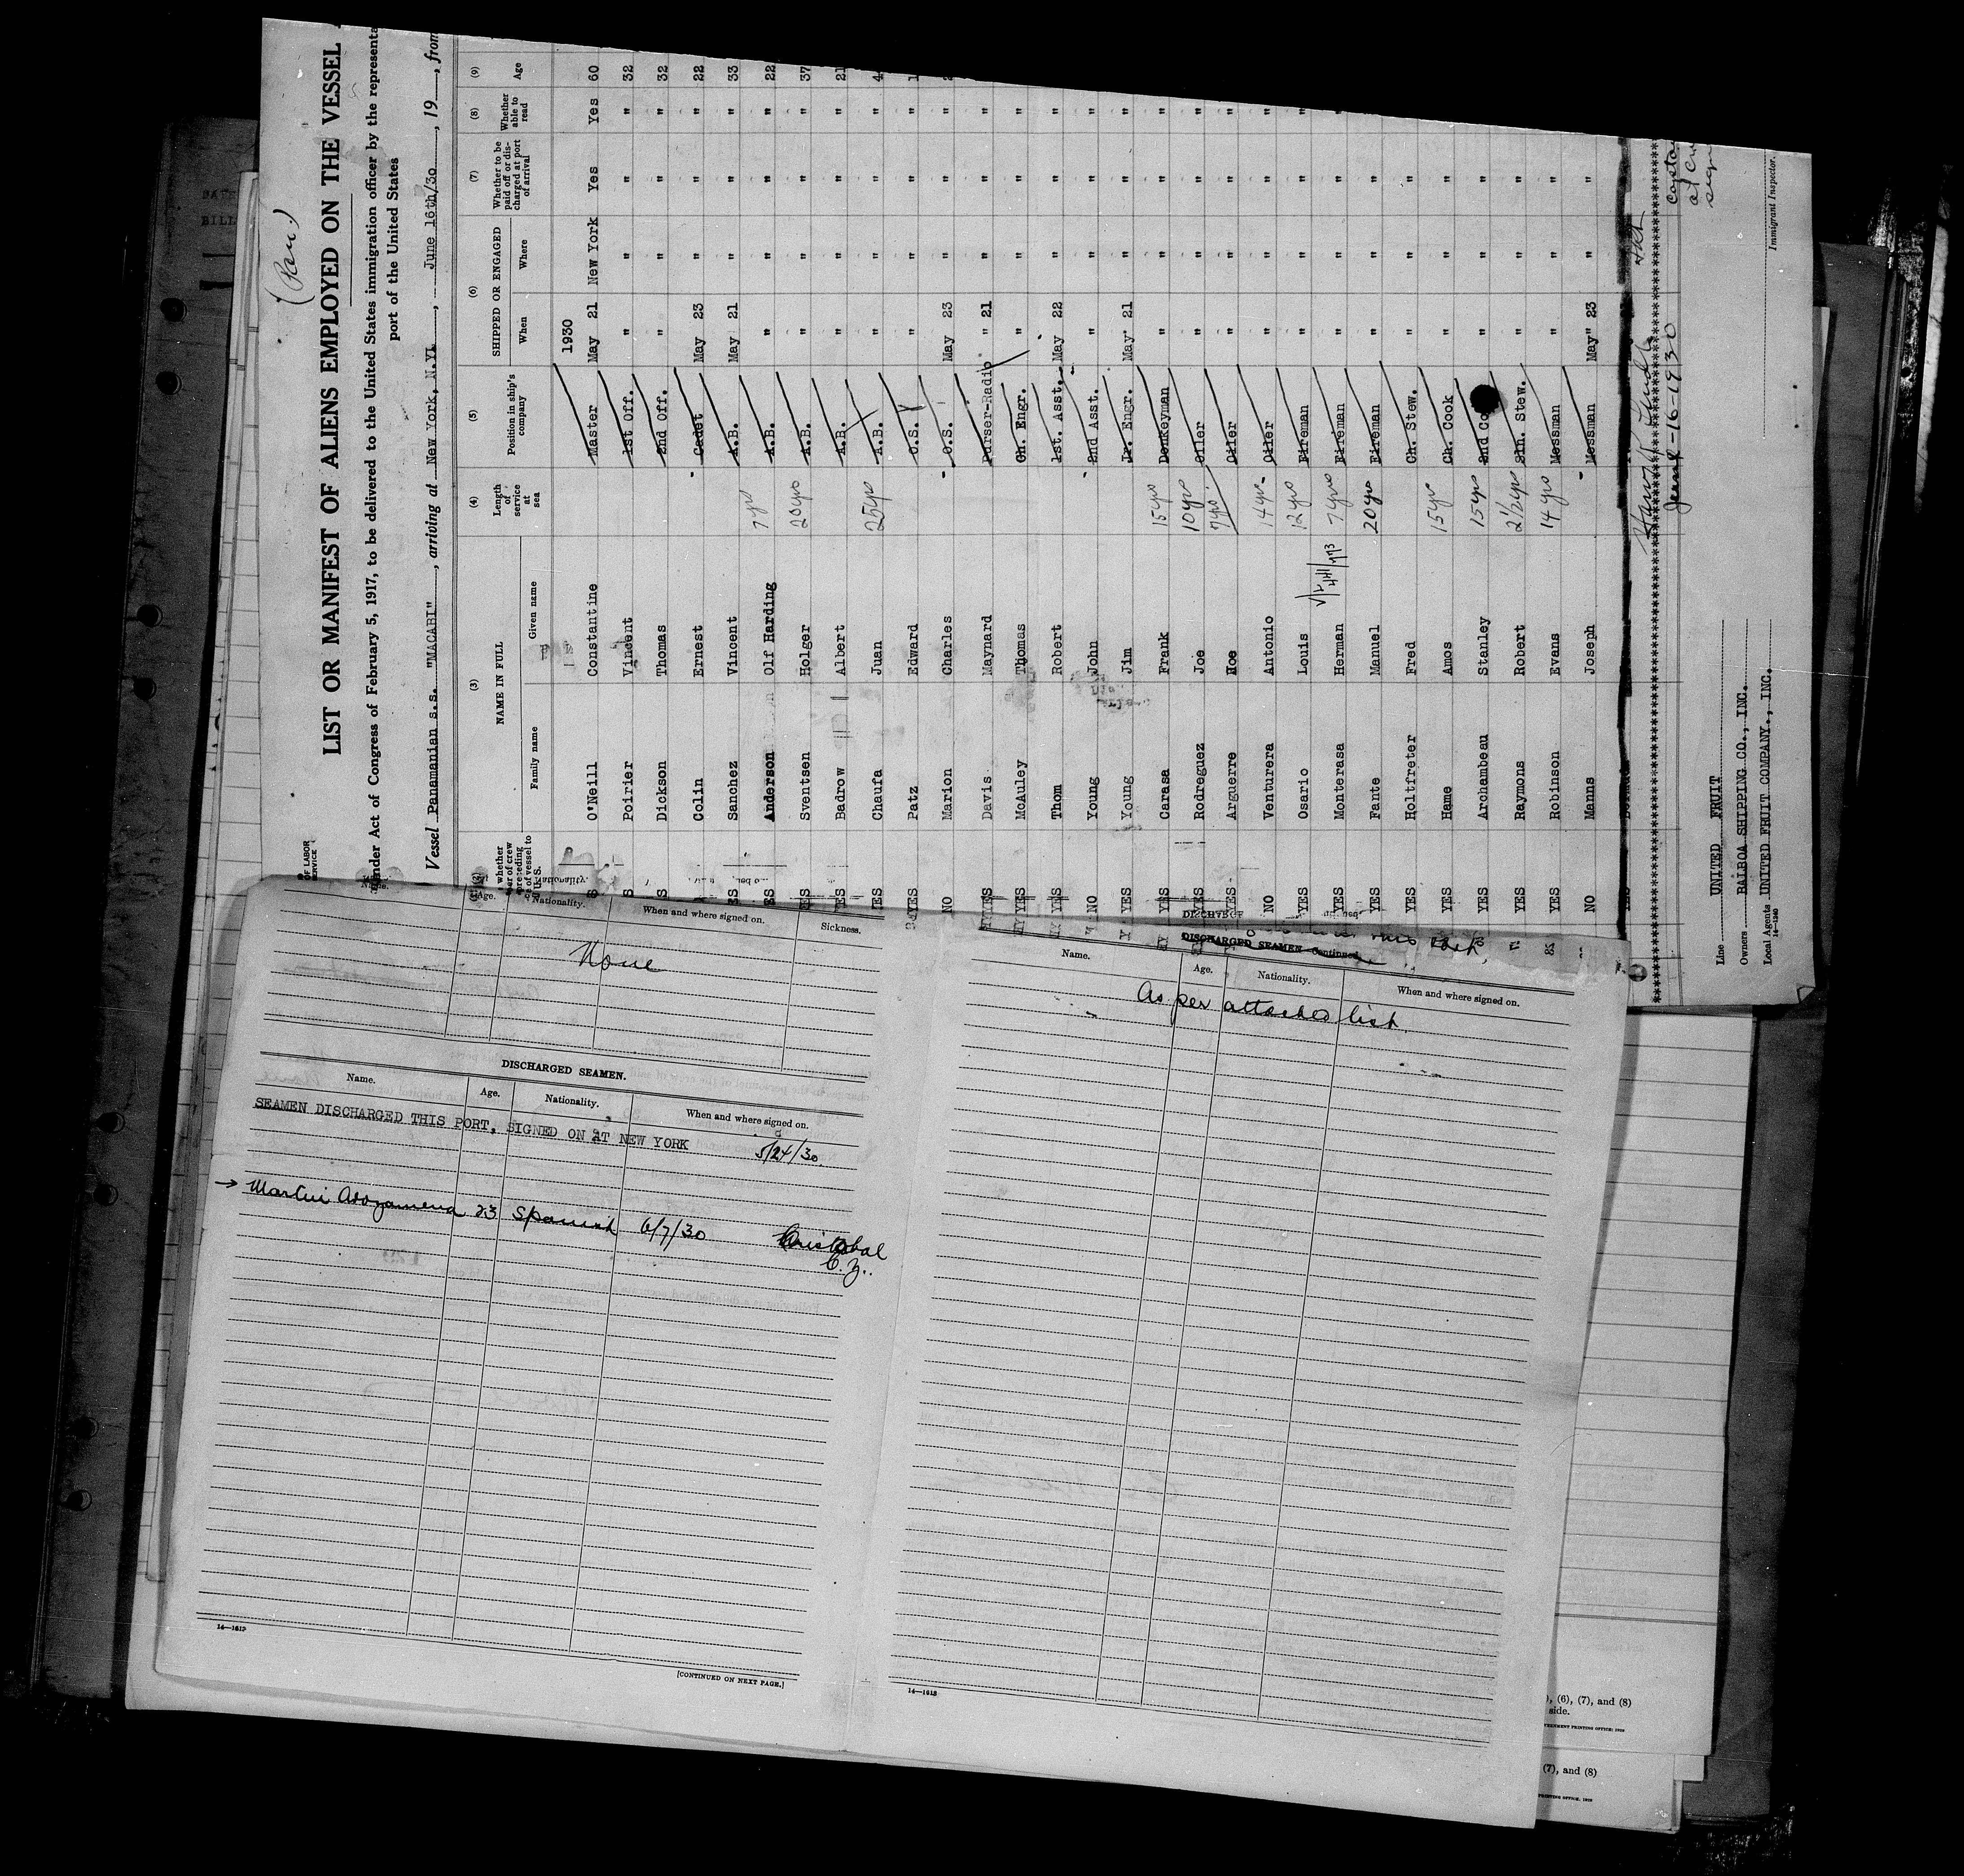 (Pan.)
LIST OR MANIFEST OF ALIENS EMPLOYED ON THE VESSEL
Under Act of Congress of February 5, 1917, to be delivered to the United States immigration officer by the representa
port of the United States
OF LABOR
SERVICE
Vessel Panamanian s.s. "MACABI", arriving at New York, N.Y., June 16th/30, 19, from
(3) (4) (5) (6) (7) (8) (9)
NAME IN FULL
Family name Given name
Length of service at sea
Position in ship's company
SHIPPED OR ENGAGED
When Where
Whether to be paid off or discharged at port of arrival
Whether able to read
Age
1930
O'Neill Constantine Master May 21 New York Yes Yes 60
Poirier Vincent 1st Off. " " " " 32
Dickson Thomas 2nd Off. " " " " 32
Colin Ernest Cadet May 23 " " " 22
ES Sanchez Vincent A.B. May 21 " " " 33
ES Anderson Olf Harding 7 yrs A.B. " " " " 22
ES Sventsen Holger 20 yrs A.B. " " " " 37
YES Badrow Albert A.B. " " " " 21
YES Chaufa Juan 25 yrs A.B. " " " " 4
YES Patz Edward O.S. " " " " 1
NO Marion Charles O.S. May 23 " " " 2
YES Davis Maynard Purser-Radio " 21 " " "
YES McAuley Thomas Ch. Engr. " " " "
YES Thom Robert 1st. Asst. May 22 " " "
NO Young John 2nd Asst. " " " "
YES Young Jim Jr. Engr. May 21 " " "
YES Carasa Frank 15 yrs Donkeyman " " " "
YES Rodreguez Joe 10 yrs Oiler " " " "
YES Arguerre Hoe 7 yrs Oiler " " " "
NO Venturera Antonio 14 yrs Oiler " " " "
YES Osario Louis 12 yrs Fireman " " " "
YES Monterasa Herman 7 yrs Fireman " " "
YES Fante Manuel 20 yrs Fireman " " "
YES Holtfreter Fred Ch. Stew. " " "
YES Hame Amos 15 yrs Ch. Cook " " "
YES Archambeau Stanley 15 yrs 2nd Co " " "
YES Raymons Robert 2 1/2 yrs Sln. Stew. " " "
YES Robinson Evans 14 yrs Messman " " "
NO Manna Joseph Messman May 23 " "
June-16-1930
Immigrant Inspector.
Line UNITED FRUIT
Owners BALBOA SHIPPING CO., INC.
Local Agents UNITED FRUIT COMPANY., INC.
14-1240
Name. Age. Nationality. When and where signed on. Sickness.
None
DISCHARGED SEAMEN.
Name. Age. Nationality. When and where signed on.
SEAMEN DISCHARGED THIS PORT, SIGNED ON AT NEW YORK 5/24/30.
→ 23 Spanish 6/7/30 Cristobal
C.Z.
14—1613
[CONTINUED ON NEXT PAGE.]
DISCHARGED SEAMEN—Continued.
Name. Age. Nationality. When and where signed on.
As per attached list.
14—1613
, (6), (7), and (8)
side.
(7), and (8)